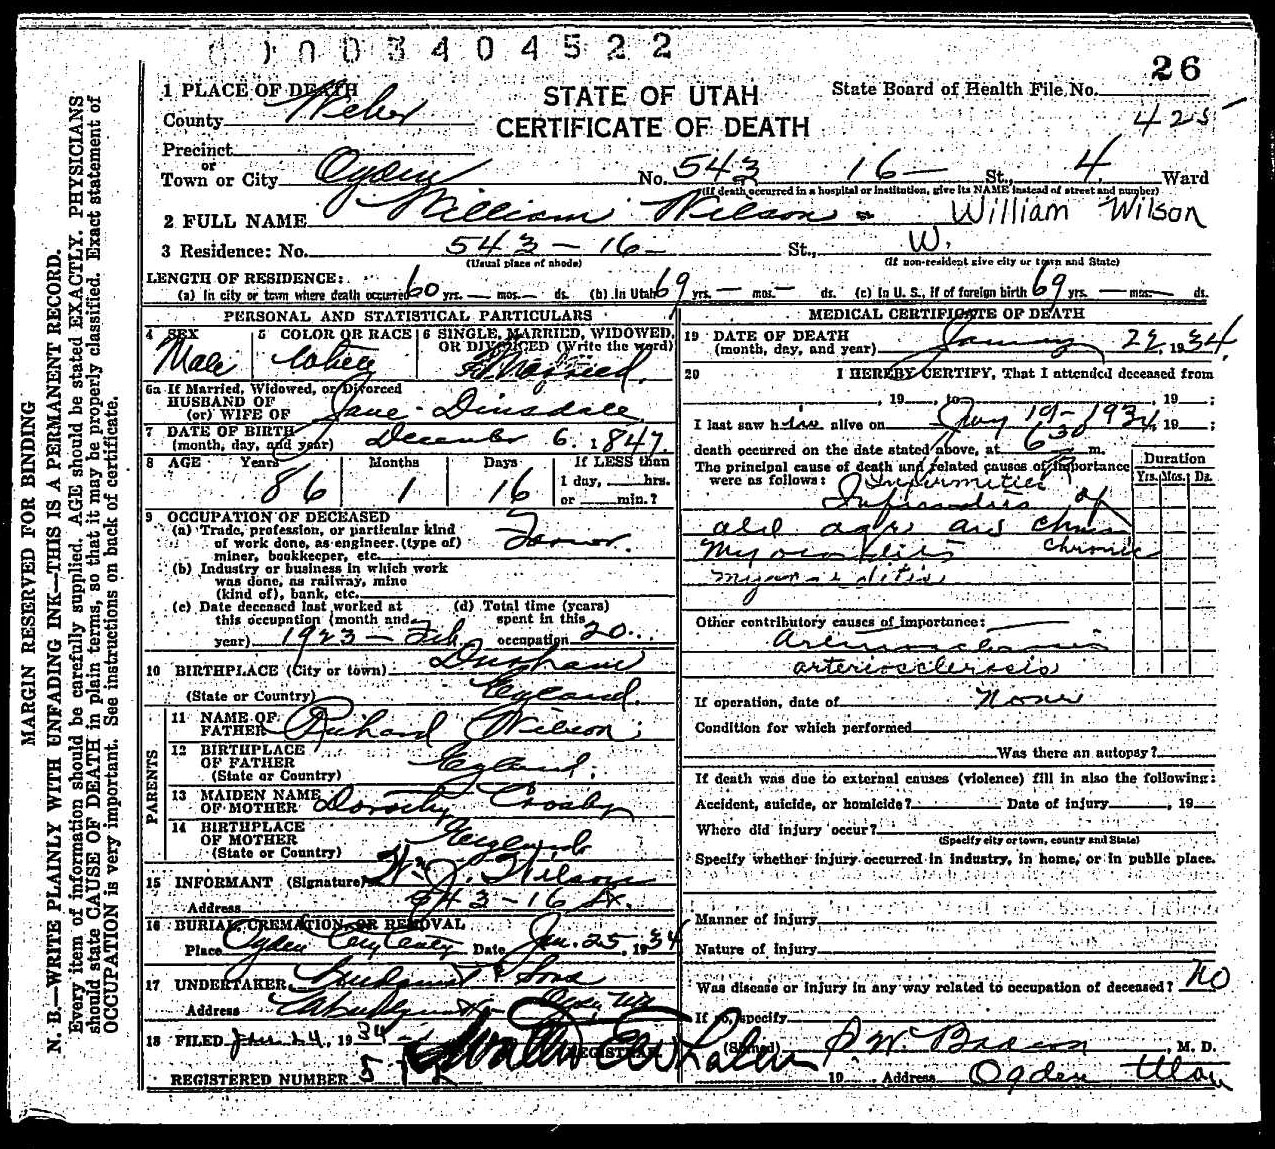 0003404522
26
1 PLACE OF DEATH
STATE OF UTAH
State Board of Health File No.
County Weber
CERTIFICATE OF DEATH
425
Precinct
or
Town or City Ogden No. 543 16- St., 4. Ward
(If death occurred in a hospital or institution, give its NAME instead of street and number)
2 FULL NAME William Wilson - William Wilson
3 Residence: No. 543 - 16 - St., W.
(Usual place of abode) (If non-resident give city or town and State)
LENGTH OF RESIDENCE:
(a) In city or town where death occurred 60 yrs. — mos. — ds. (b) In Utah 69 yrs. — mos. — ds. (c) In U. S., if of foreign birth 69 yrs. — mos. — ds.
PERSONAL AND STATISTICAL PARTICULARS
4 SEX 5 COLOR OR RACE 6 SINGLE, MARRIED, WIDOWED,
OR DIVORCED (Write the word)
Male White Married.
6a If Married, Widowed, or Divorced
HUSBAND OF
(or) WIFE OF Jane Dinsdale
7 DATE OF BIRTH
(month, day, and year) December 6. 1847.
8 AGE Years Months Days If LESS than
86 1 16 1 day, hrs.
or min.?
9 OCCUPATION OF DECEASED
(a) Trade, profession, or particular kind
of work done, as engineer (type of)
miner, bookkeeper, etc.
(b) Industry or business in which work
was done, as railway, mine
(kind of), bank, etc.
(c) Date deceased last worked at (d) Total time (years)
this occupation (month and spent in this
year) 1923 - Feb occupation 20
10 BIRTHPLACE (City or town)
(State or Country) England.
PARENTS
11 NAME OF
FATHER Richard Wilson
12 BIRTHPLACE
OF FATHER England.
(State or Country)
13 MAIDEN NAME
OF MOTHER Dorothy Crosby
14 BIRTHPLACE
OF MOTHER England
(State or Country)
15 INFORMANT (Signature) Wm. J. Wilson
Address 543 - 16 St.
16 BURIAL, CREMATION, OR REMOVAL
Place Ogden City Cemetery Date Jan. 25, 1934
17 UNDERTAKER & Sons
Address Ogden Utah
18 FILED Jan 24, 1934
REGISTRAR
REGISTERED NUMBER 5
MEDICAL CERTIFICATE OF DEATH
19 DATE OF DEATH
(month, day, and year) January 22, 1934.
20 I HEREBY CERTIFY, That I attended deceased from
, 19 , to , 19 ;
I last saw him alive on Jany 19 - 1934, 19 ;
death occurred on the date stated above, at 6 30 m.
The principal cause of death and related causes of importance
were as follows:
Duration
Yrs. Mos. Ds.
Infirmities
Infirmities of
old age and chronic
Myocarditis chronic
myocarditis
Other contributory causes of importance:
Arteriosclerosis
arteriosclerosis
If operation, date of None
Condition for which performed
Was there an autopsy?
If death was due to external causes (violence) fill in also the following:
Accident, suicide, or homicide? Date of injury , 19
Where did injury occur?
(Specify city or town, county and State)
Specify whether injury occurred in industry, in home, or in public place.
Manner of injury
Nature of injury
Was disease or injury in any way related to occupation of deceased? NO
If so, specify
(Signed) , M. D.
19 Address Ogden Utah
MARGIN RESERVED FOR BINDING
N. B.—WRITE PLAINLY WITH UNFADING INK—THIS IS A PERMANENT RECORD.
Every item of information should be carefully supplied. AGE should be stated EXACTLY. PHYSICIANS
should state CAUSE OF DEATH in plain terms, so that it may be properly classified. Exact statement of
OCCUPATION is very important. See instructions on back of certificate.